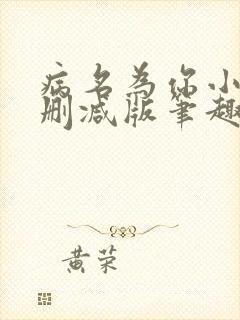 病名为你小
删减版笔趣
黄荣